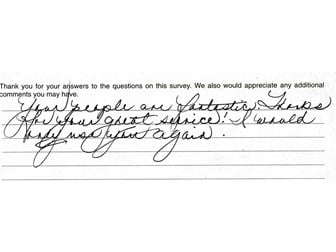 Thank you for your answers to the questions on this survey. We also would appreciate any additional
comments you may have.
Your people are fantastic. Thanks
for your great service! I would
use you again.